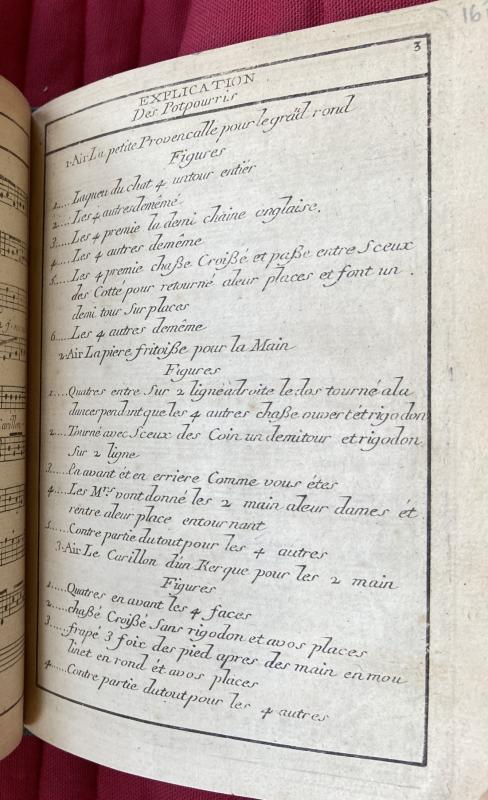 161
3
EXPLICATION
Des Potpourris
1. Air La petite Provencalle pour le grād rond
Figures
1.... Laqueu du chat 4 untour entier
2.... Les 4 autres demêmé
3.... Les 4 premie la demi chaine englaise.
4.... Les 4 autres demême
5.... Les 4 premie chaße Croißé et paße entre Sceux
des Cotté pour retourné aleur places et font un
demi tour Sur places
6.... Les 4 autres demême
2. Air La piere fritoiße pour la Main
Figures
1.... Quatres entre Sur 2 ligne a droite le dos tourné a la
duncer pendint que les 4 autres chaße ouvert ét rigodon
2.... Tourné avec Sceux des Coin un demi tour et rigodon
Sur 2 ligne
3.... En avant ét en erriere Comme vous étes
4.... Les Mrs. vont donné les 2 main aleur dames ét
rentre aleur place entournant
5.... Contre partie du tout pour les 4 autres
3. Air Le Carillon d'un Kerque pour les 2 main
Figures
1.... Quatres en avant les 4 faces
2.... chaßé Croißé Sans rigodon et avos places
3.... frapé 3 foix des pied apres des main en mou
linet en rond ét avos places
4.... Contre partie du tout pour les 4 autres